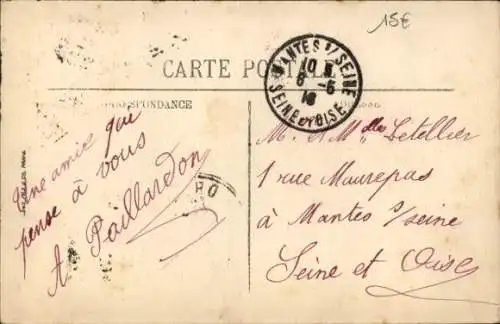 15€
CARTE POSTALE
MANTES S/ SEINE
10
6 - 6
16
SEINE ET OISE
CORRESPONDANCE
Une amie qui
pense à vous
A Paillardon
M. et Mlles Letellier
1 rue Maurepas
à Mantes s/seine
Seine et Oise